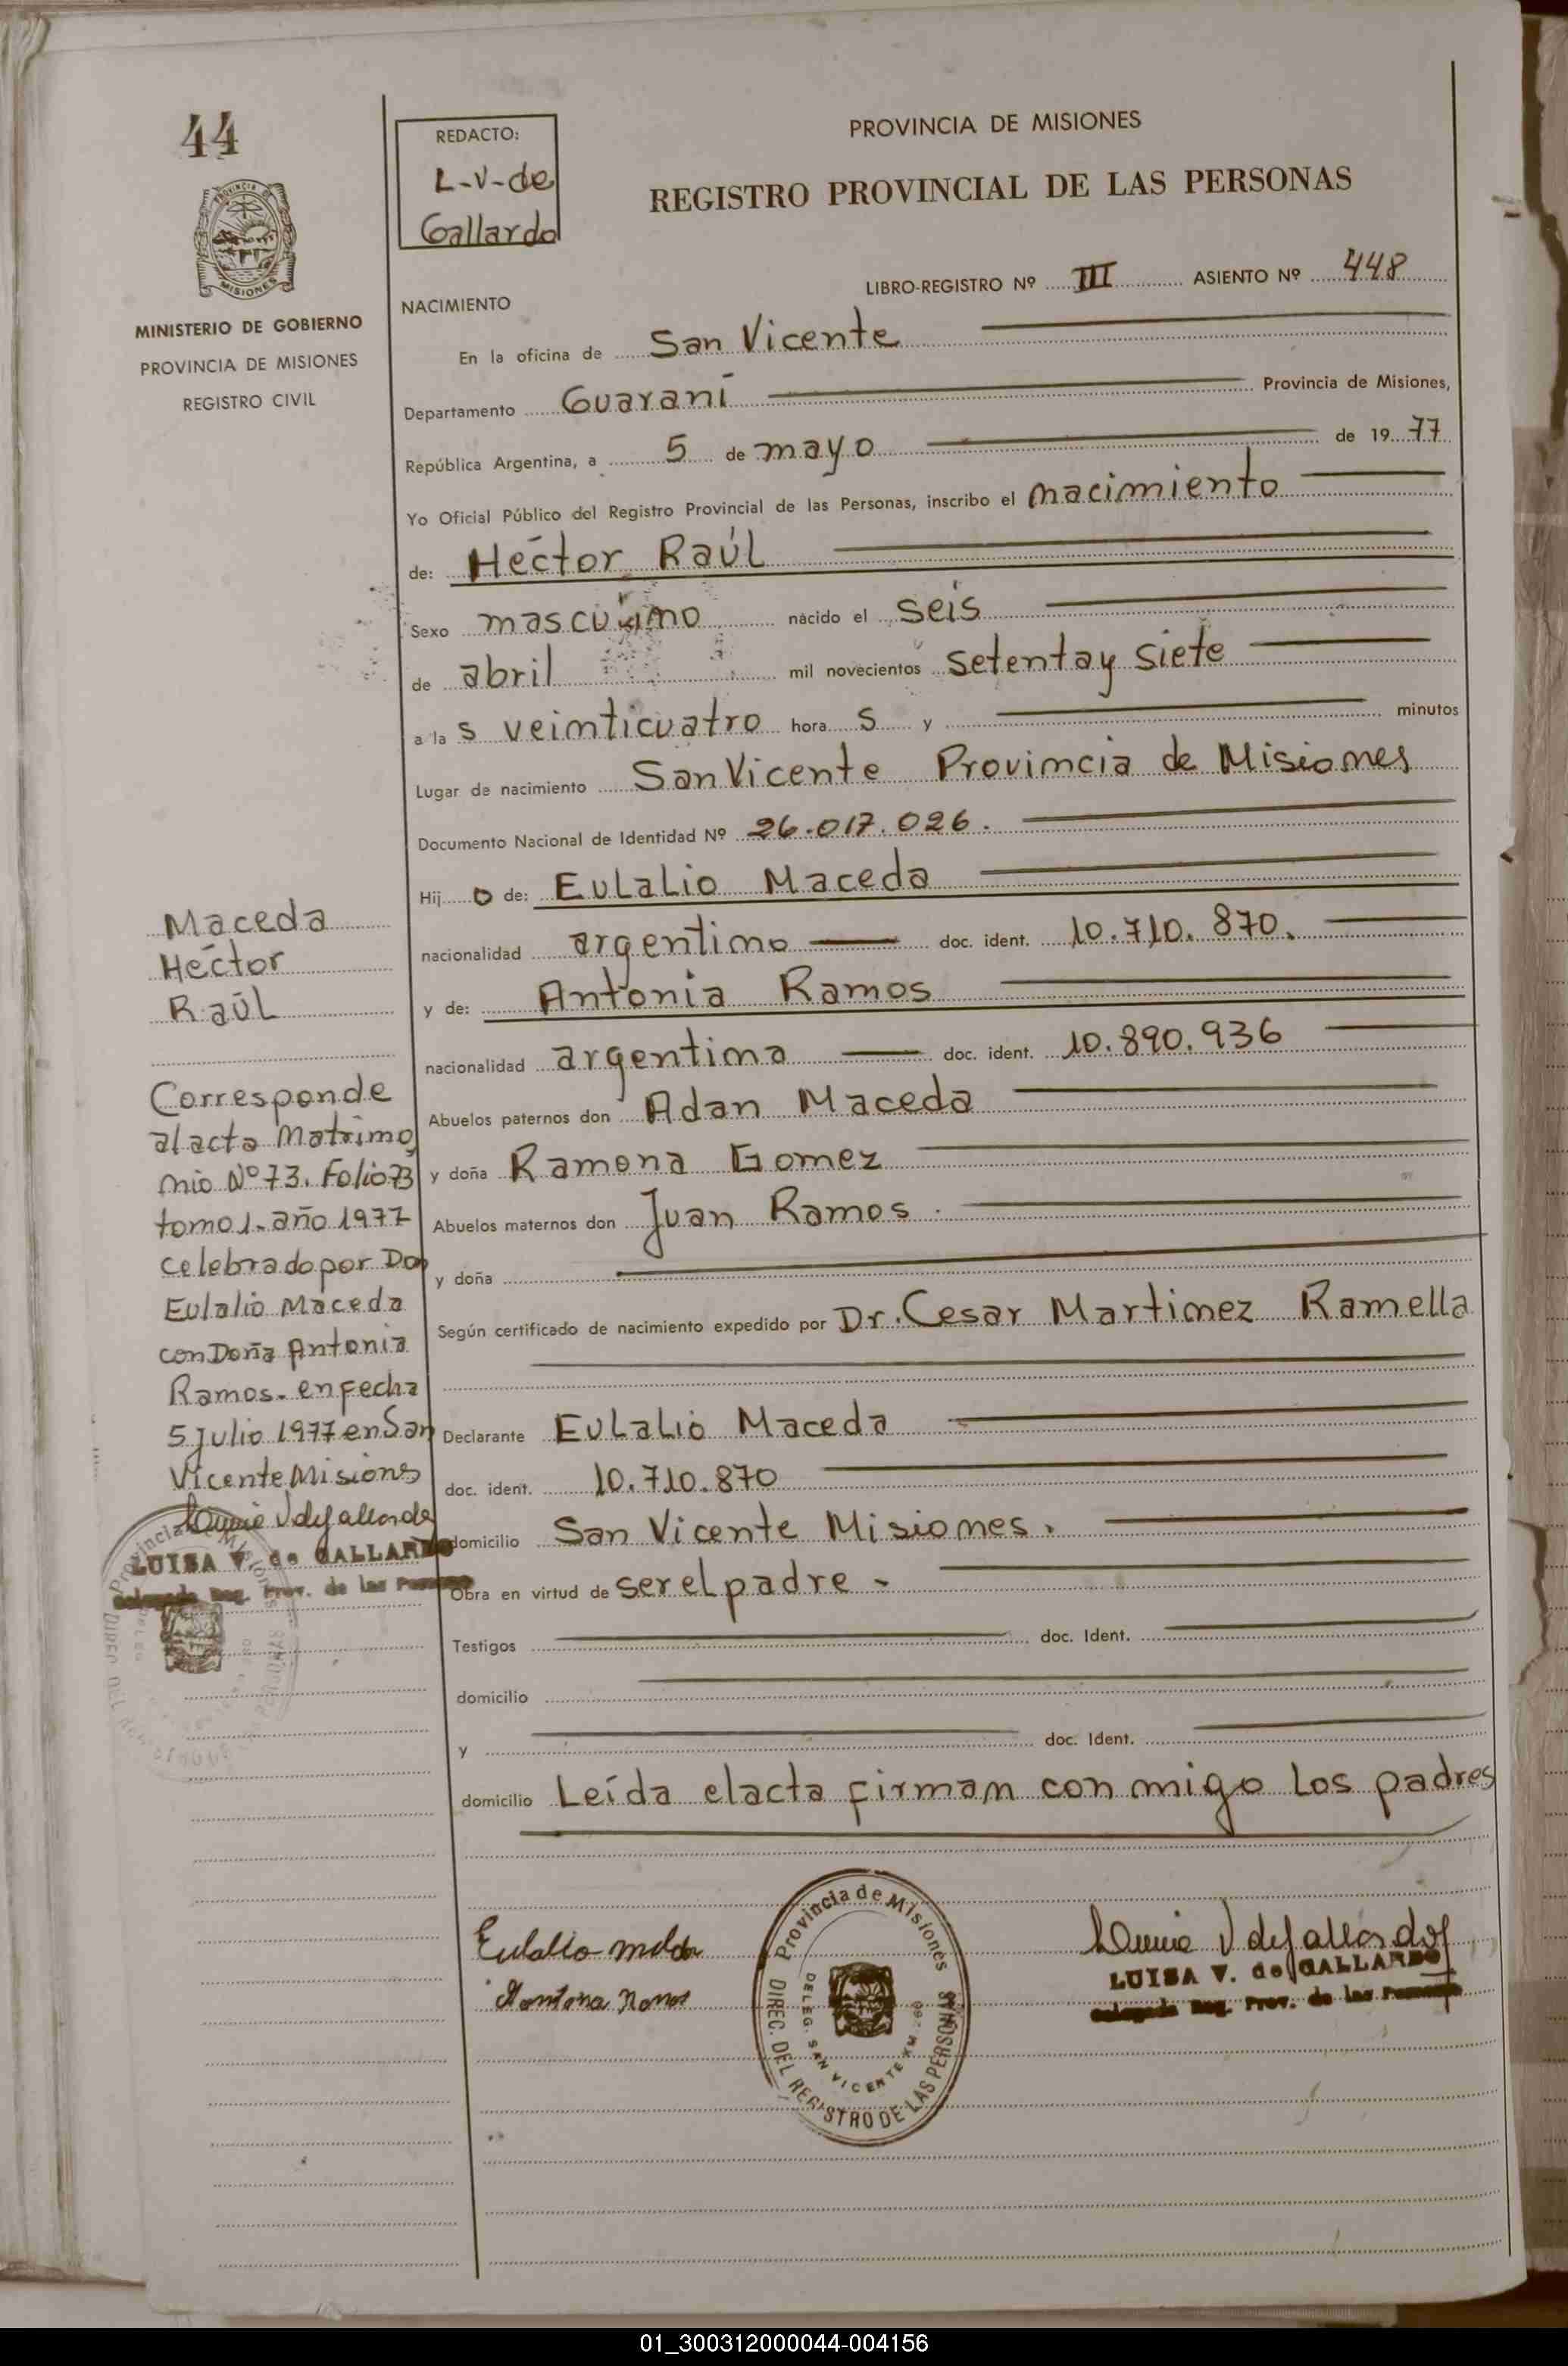 44
PROVINCIA DE MISIONES
MINISTERIO DE GOBIERNO
PROVINCIA DE MISIONES
REGISTRO CIVIL
REDACTO:
L-V-de
Gallardo
PROVINCIA DE MISIONES
REGISTRO PROVINCIAL DE LAS PERSONAS
LIBRO-REGISTRO Nº III ASIENTO Nº 448
NACIMIENTO
En la oficina de San Vicente
Departamento Guaraní Provincia de Misiones,
República Argentina, a 5 de mayo de 1977
Yo Oficial Público del Registro Provincial de las Personas, inscribo el nacimiento
de: Héctor Raúl
Sexo masculino nacido el seis
de abril mil novecientos setenta y siete
a la s veinticuatro hora s y minutos
Lugar de nacimiento San Vicente Provincia de Misiones
Documento Nacional de Identidad Nº 26.017.026.
Hij o de: Eulalio Maceda
nacionalidad argentino doc. ident. 10.710.870.
y de: Antonia Ramos
nacionalidad argentina doc. ident. 10.890.936
Abuelos paternos don Adan Maceda
y doña Ramona Gomez
Abuelos maternos don Juan Ramos.
y doña
Según certificado de nacimiento expedido por Dr. Cesar Martinez Ramella
Declarante Eulalio Maceda
doc. ident. 10.710.870
domicilio San Vicente Misiones.
Obra en virtud de ser el padre -
Testigos doc. Ident.
domicilio
y doc. Ident.
domicilio Leída el acta firman con migo los padres
Maceda
Héctor
Raúl
Corresponde
al acta Matrimo
nio Nº 73. Folio 73
tomo 1. año 1977
celebrado por Don
Eulalio Maceda
con Doña Antonia
Ramos. en fecha
5 julio 1977 en San
Vicente Misiones
LUISA V. de GALLARDO
Delegada Reg. Prov. de las Personas
Eulalio
Provincia de Misiones
DIREC. DEL REGISTRO DE LAS PERSONAS
DELEG. SAN VICENTE
LUISA V. de GALLARDO
Delegada Reg. Prov. de las Personas
01_300312000044-004156